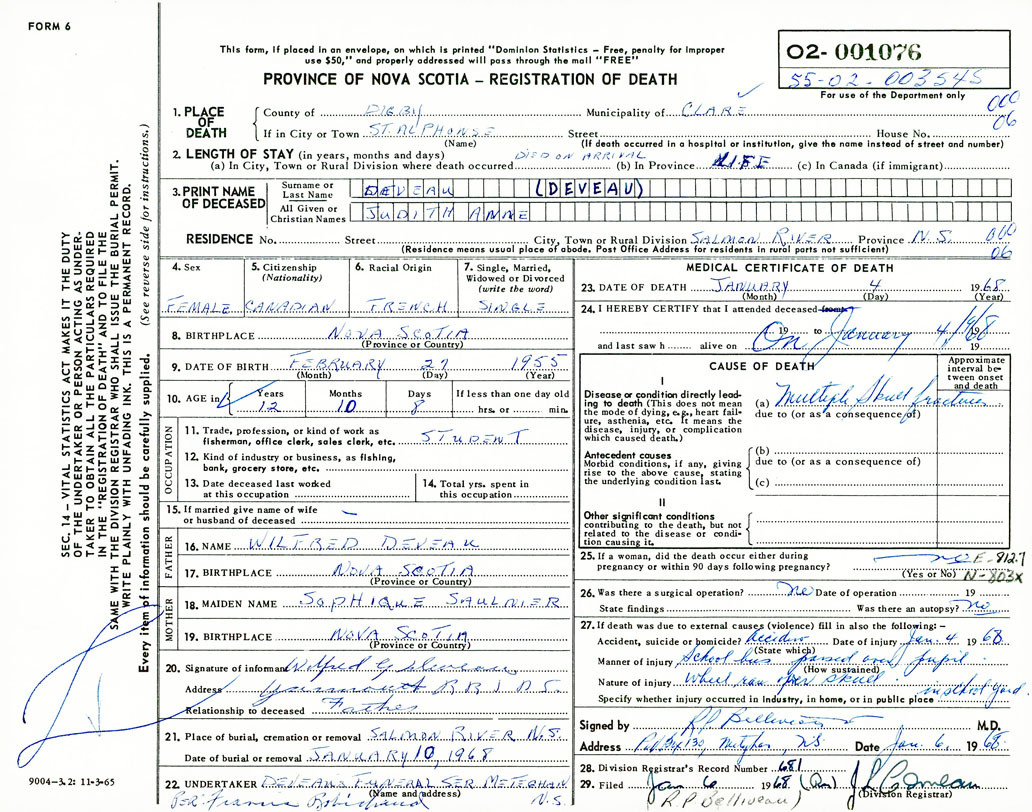 FORM 6
This form, if placed in an envelope, on which is printed "Dominion Statistics – Free, penalty for improper
use $50," and properly addressed will pass through the mail "FREE"
PROVINCE OF NOVA SCOTIA – REGISTRATION OF DEATH
O2- 001076
55-02-003545
For use of the Department only
000
06
1. PLACE OF DEATH County of DIGBY Municipality of CLARE
If in City or Town ST. ALPHONSE Street House No.
(Name) (If death occurred in a hospital or institution, give the name instead of street and number)
2. LENGTH OF STAY (in years, months and days) DIED ON ARRIVAL
(a) In City, Town or Rural Division where death occurred (b) In Province LIFE (c) In Canada (if immigrant)
3. PRINT NAME OF DECEASED
Surname or Last Name DEVEAU (DEVEAU)
All Given or Christian Names JUDITH ANNE
RESIDENCE No. Street City, Town or Rural Division SALMON RIVER Province N.S. 000
(Residence means usual place of abode. Post Office Address for residents in rural parts not sufficient) 06
4. Sex FEMALE
5. Citizenship (Nationality) CANADIAN
6. Racial Origin FRENCH
7. Single, Married, Widowed or Divorced (write the word) SINGLE
8. BIRTHPLACE NOVA SCOTIA
(Province or Country)
9. DATE OF BIRTH FEBRUARY 27 1955
(Month) (Day) (Year)
10. AGE in Years Months Days If less than one day old
12 10 8 hrs. or min.
OCCUPATION
11. Trade, profession, or kind of work as
fisherman, office clerk, sales clerk, etc. STUDENT
12. Kind of industry or business, as fishing,
bank, grocery store, etc.
13. Date deceased last worked
at this occupation
14. Total yrs. spent in
this occupation
15. If married give name of wife
or husband of deceased –
FATHER
16. NAME WILFRED DEVEAU
17. BIRTHPLACE NOVA SCOTIA
(Province or Country)
MOTHER
18. MAIDEN NAME SOPHIQUE SAULNIER
19. BIRTHPLACE NOVA SCOTIA
(Province or Country)
20. Signature of informant Wilfred G. Deveau
Address Yarmouth R R 1 N.S.
Relationship to deceased Father
21. Place of burial, cremation or removal SALMON RIVER N.S.
Date of burial or removal JANUARY 10, 1968
22. UNDERTAKER DEVEAU FUNERAL SER METEGHAN
(Name and address) N.S.
PER: Francis Robichaud
MEDICAL CERTIFICATE OF DEATH
23. DATE OF DEATH JANUARY 4 1968
(Month) (Day) (Year)
24. I HEREBY CERTIFY that I attended deceased from:
19 to 19
On January 4/68
and last saw h alive on 19
CAUSE OF DEATH
Approximate interval between onset and death
I
Disease or condition directly leading to death (This does not
mean the mode of dying, e.g., heart failure, asthenia, etc. It means the
disease, injury, or complication
which caused death.)
(a) Multiple Skull fractures
due to (or as a consequence of)
Antecedent causes
Morbid conditions, if any, giving
rise to the above cause, stating
the underlying condition last.
(b)
due to (or as a consequence of)
(c)
II
Other significant conditions
contributing to the death, but not
related to the disease or condition causing it.
25. If a woman, did the death occur either during
pregnancy or within 90 days following pregnancy? no
(Yes or No)
E-812.7
N-803X
26. Was there a surgical operation? no Date of operation 19
State findings Was there an autopsy? no
27. If death was due to external causes (violence) fill in also the following: –
Accident, suicide or homicide? Accident Date of injury Jan. 4 1968
(State which)
Manner of injury School bus passed over pupil.
(How sustained)
Nature of injury wheel ran over skull
in school yard.
Specify whether injury occurred in industry, in home, or in public place
Signed by R P Belliveau M.D.
Address P.O. Box 130, Meteghan, NS Date Jan. 6, 1968
28. Division Registrar's Record Number 681
29. Filed Jan 6 1968
(R. P Belliveau) (Division Registrar)
SEC. 14 – VITAL STATISTICS ACT MAKES IT THE DUTY
OF THE UNDERTAKER OR PERSON ACTING AS UNDER-
TAKER TO OBTAIN ALL THE PARTICULARS REQUIRED
IN THE "REGISTRATION OF DEATH" AND TO FILE THE
SAME WITH THE DIVISION REGISTRAR WHO SHALL ISSUE THE BURIAL PERMIT.
WRITE PLAINLY WITH UNFADING INK. THIS IS A PERMANENT RECORD.
Every item of information should be carefully supplied. (See reverse side for instructions.)
9004-3.2: 11-3-65